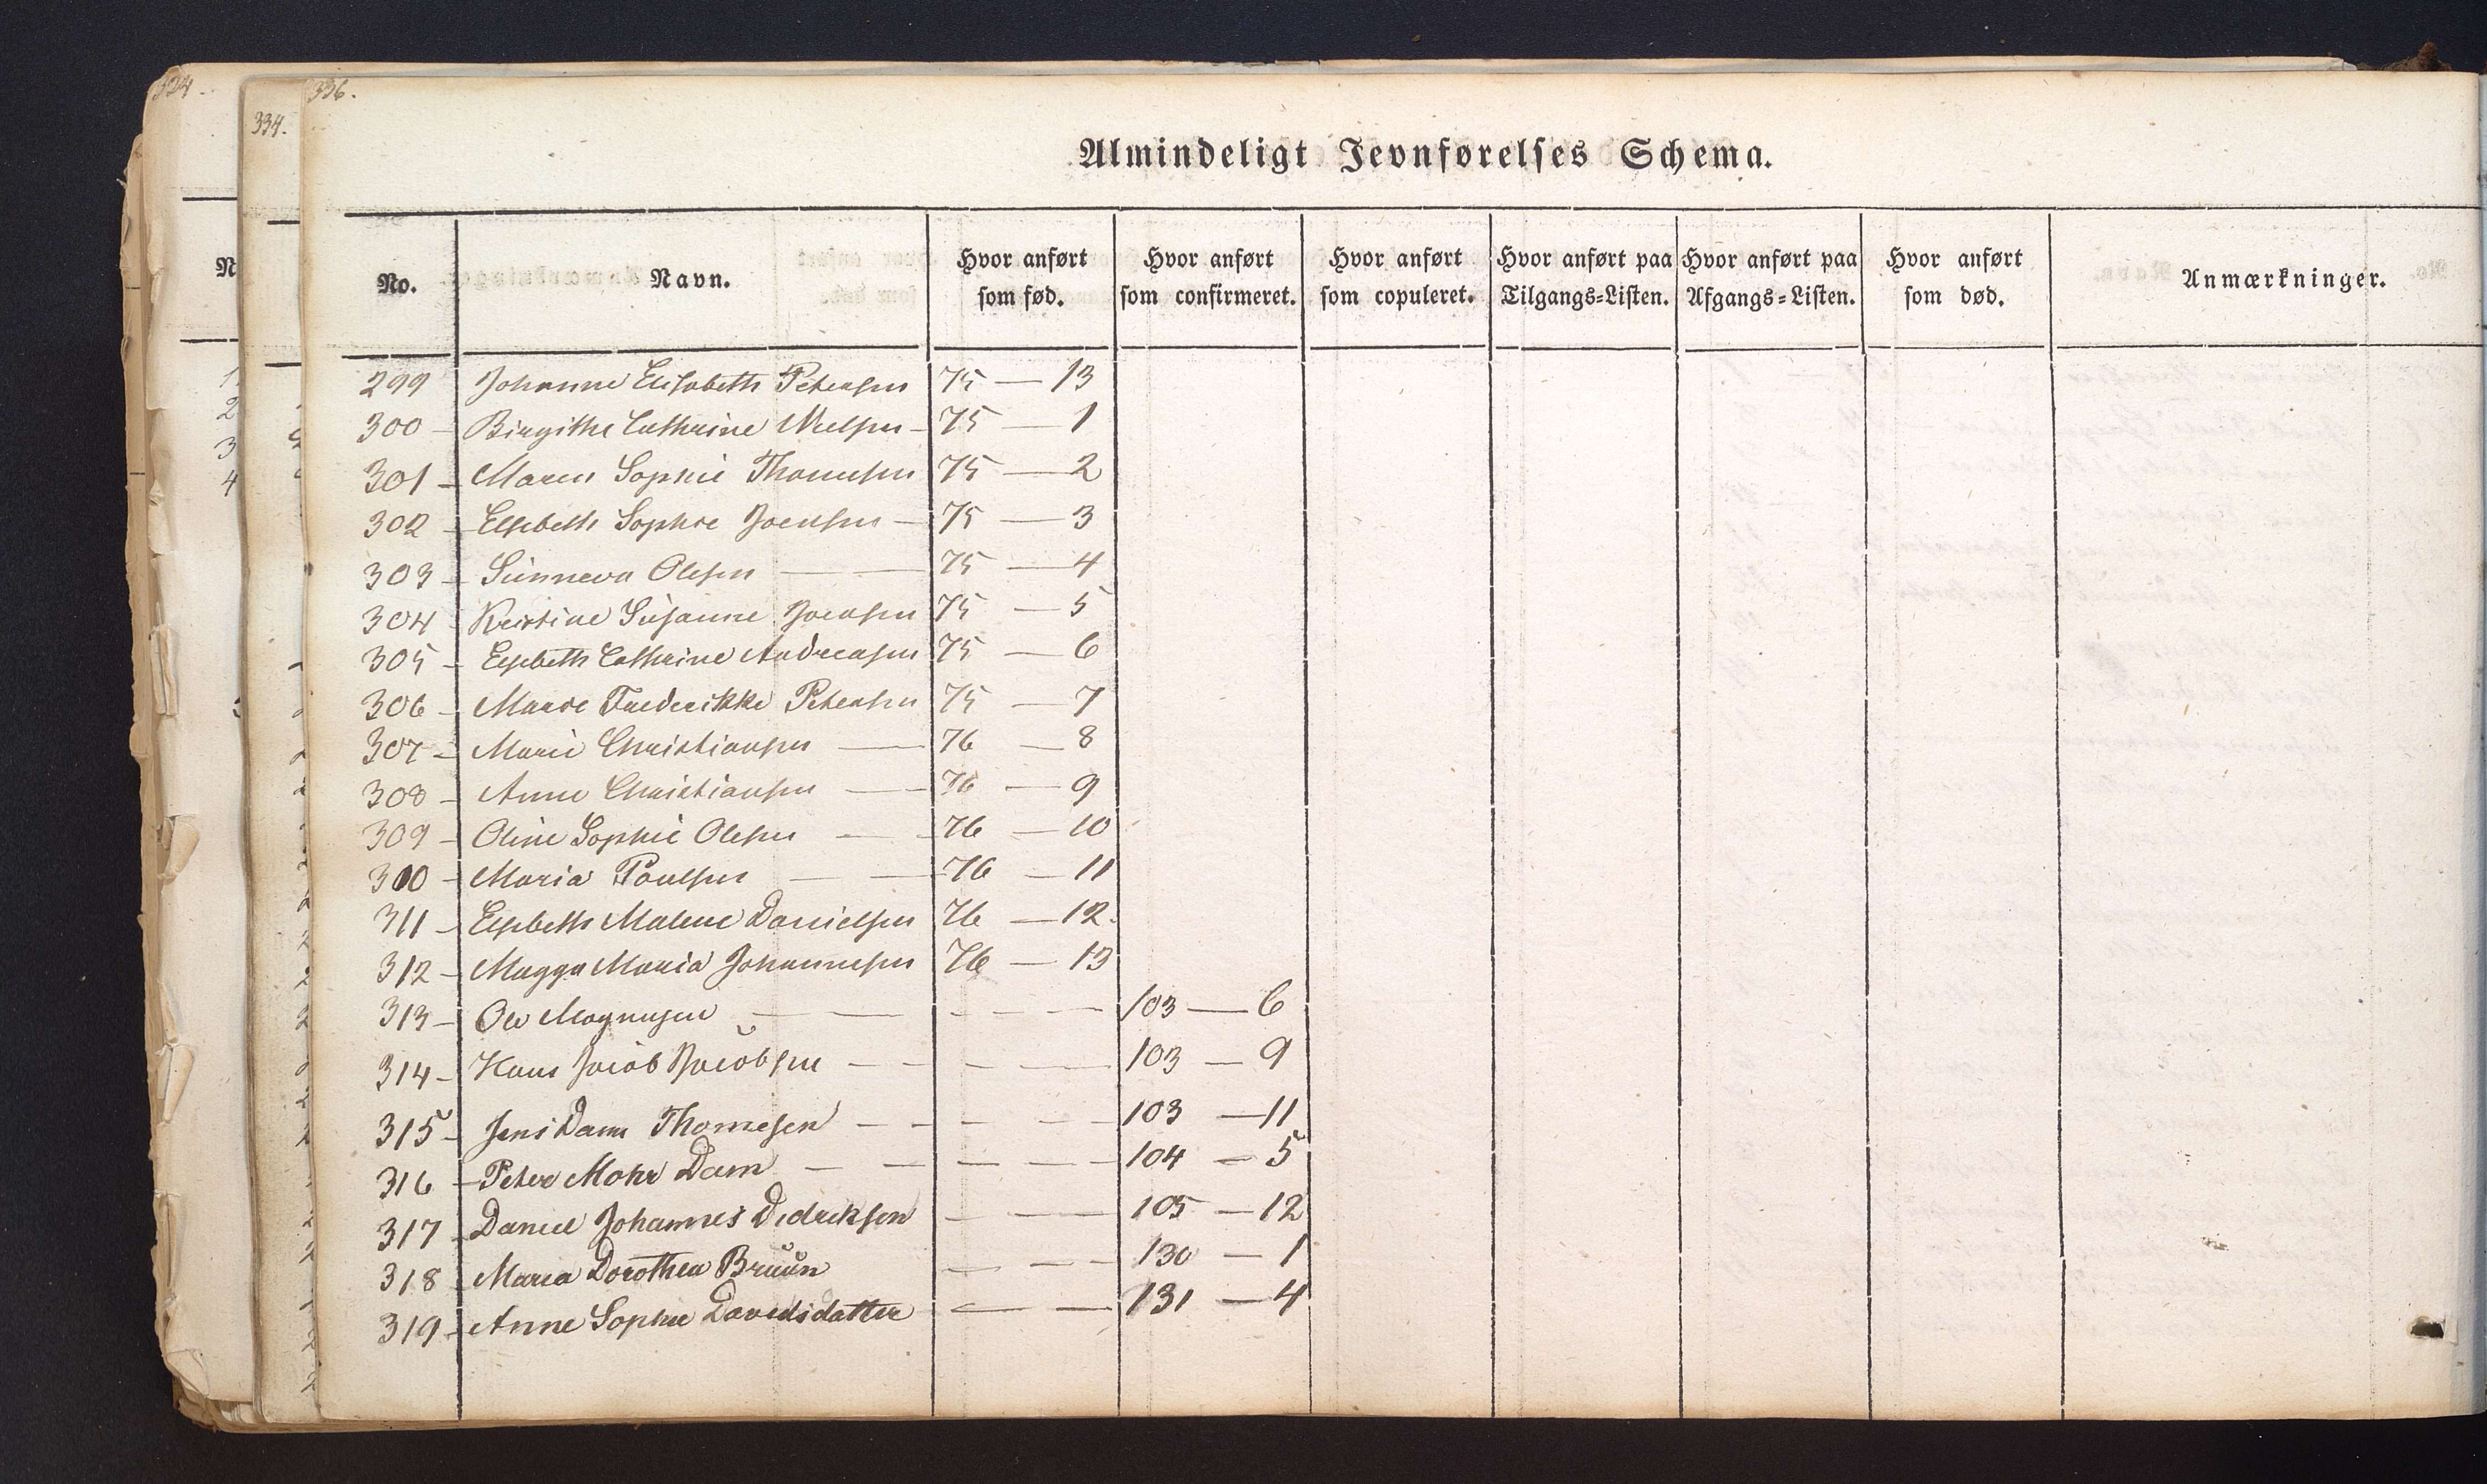 324.
334.
336.
Almindeligt Jevnførelses Schema.
No. Navn. Hvor anført som fød. Hvor anført som confirmeret. Hvor anført som copuleret. Hvor anført paa Tilgangs=Listen. Hvor anført paa Afgangs=Listen. Hvor anført som død. Anmærkninger.
299 Johanne Elisabeth Petersen 75 — 13
300 - Birgithe Cathrine Nielsen - 75 — 1
301 - Maren Sophie Thomesen 75 — 2
302 - Elsebeth Sophie Joensen - 75 — 3
303 - Sunneva Olesen — 75 — 4
304 - Kristine Susanne Joensen 75 — 5
305 - Elsebeth Cathrine Andreasen 75 — 6
306 - Marie Frederikke Petersen 75 — 7
307 - Marie Christiansen — 76 — 8
308 - Anne Christiansen — 76 — 9
309 - Oline Sophie Olesen — 76 — 10
300 - Maria Poulsen — — 76 — 11
311 - Elsebeth Malene Danielsen 76 — 12.
312 - Magga Maria Johannesen 76 — 13
313 - Ole Magnusen — — - - — 103 — 6
314 - Hans Jacob Jacobsen — - - — 103 — 9
315 - Jens Dam Thomesen — - - - — 103 — 11
316 - Peter Mohr Dam — — — — - 104 — 5
317 - Daniel Johannes Didriksen — - — 105 — 12
318 - Maria Dorothea Bruun — - - 130 — 1
319 - Anne Sophie Davidsdatter — — 131 — 4